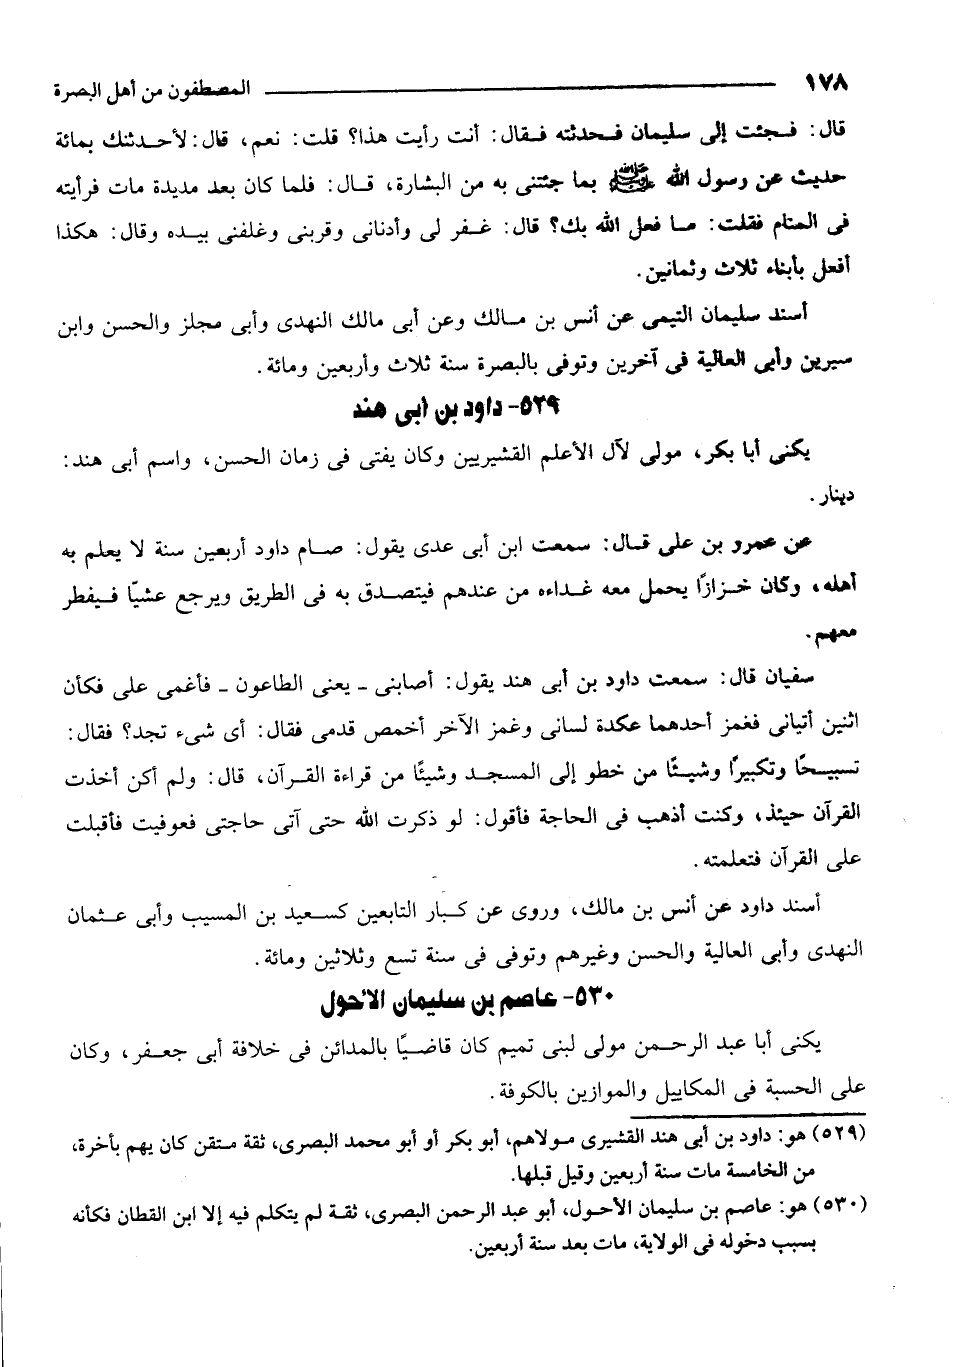 ١٧٨ المصطفون من أهل البصرة
قال: فجئت إلى سليمان فحدثته فقال: أنت رأيت هذا؟ قلت: نعم، قال: لأحدثنك بمائة
حديث عن رسول الله ﷺ بما جئتنى به من البشارة، قال: فلما كان بعد مديدة مات فرأيته
فى المنام فقلت: ما فعل الله بك؟ قال: غفر لى وأدنانى وقربنى وغلفنى بيده وقال: هكذا
أفعل بأبناء ثلاث وثمانين.
أسند سليمان التيمى عن أنس بن مالك وعن أبى مالك النهدى وأبى مجلز والحسن وابن
سيرين وأبى العالية فى آخرين وتوفى بالبصرة سنة ثلاث وأربعين ومائة.
٥٢٩- داود بن أبى هند
يكنى أبا بكر، مولى لآل الأعلم القشيريين وكان يفتى فى زمان الحسن، واسم أبى هند:
دينار.
عن عمرو بن على قال: سمعت ابن أبى عدى يقول: صام داود أربعين سنة لا يعلم به
أهله، وكان خزازًا يحمل معه غداءه من عندهم فيتصدق به فى الطريق ويرجع عشيًا فيفطر
معهم.
سفيان قال: سمعت داود بن أبى هند يقول: أصابنى ـ يعنى الطاعون ـ فأغمى على فكأن
اثنين أتيانى فغمز أحدهما عكدة لسانى وغمز الآخر أخمص قدمى فقال: أى شىء تجد؟ فقال:
تسبيحًا وتكبيرًا وشيئًا من خطو إلى المسجد وشيئًا من قراءة القرآن، قال: ولم أكن أخذت
القرآن حيئذ، وكنت أذهب فى الحاجة فأقول: لو ذكرت الله حتى آتى حاجتى فعوفيت فأقبلت
على القرآن فتعلمته.
أسند داود عن أنس بن مالك، وروى عن كبار التابعين كسعيد بن المسيب وأبى عثمان
النهدى وأبى العالية والحسن وغيرهم وتوفى فى سنة تسع وثلاثين ومائة.
٥٣٠- عاصم بن سليمان الأحول
يكنى أبا عبد الرحمن مولى لبنى تميم كان قاضيًا بالمدائن فى خلافة أبى جعفر، وكان
على الحسبة فى المكاييل والموازين بالكوفة.
(٥٢٩) هو: داود بن أبى هند القشيرى مولاهم، أبو بكر أو أبو محمد البصرى، ثقة متقن كان يهم بأخرة،
من الخامسة مات سنة أربعين وقيل قبلها.
(٥٣٠) هو: عاصم بن سليمان الأحول، أبو عبد الرحمن البصرى، ثقة لم يتكلم فيه إلا ابن القطان فكأنه
بسبب دخوله فى الولاية، مات بعد سنة أربعين.